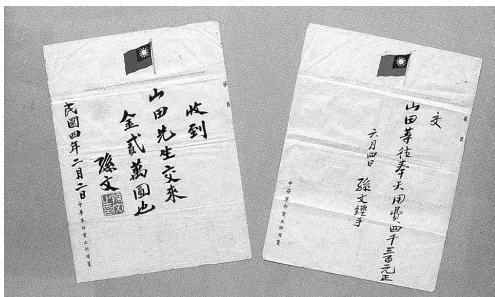 收到
山田先生交來
金貳萬圓也
孫文
民國四年二月二日
交
山田等往奉天用費四千三百元正
六月四日
孫文經手